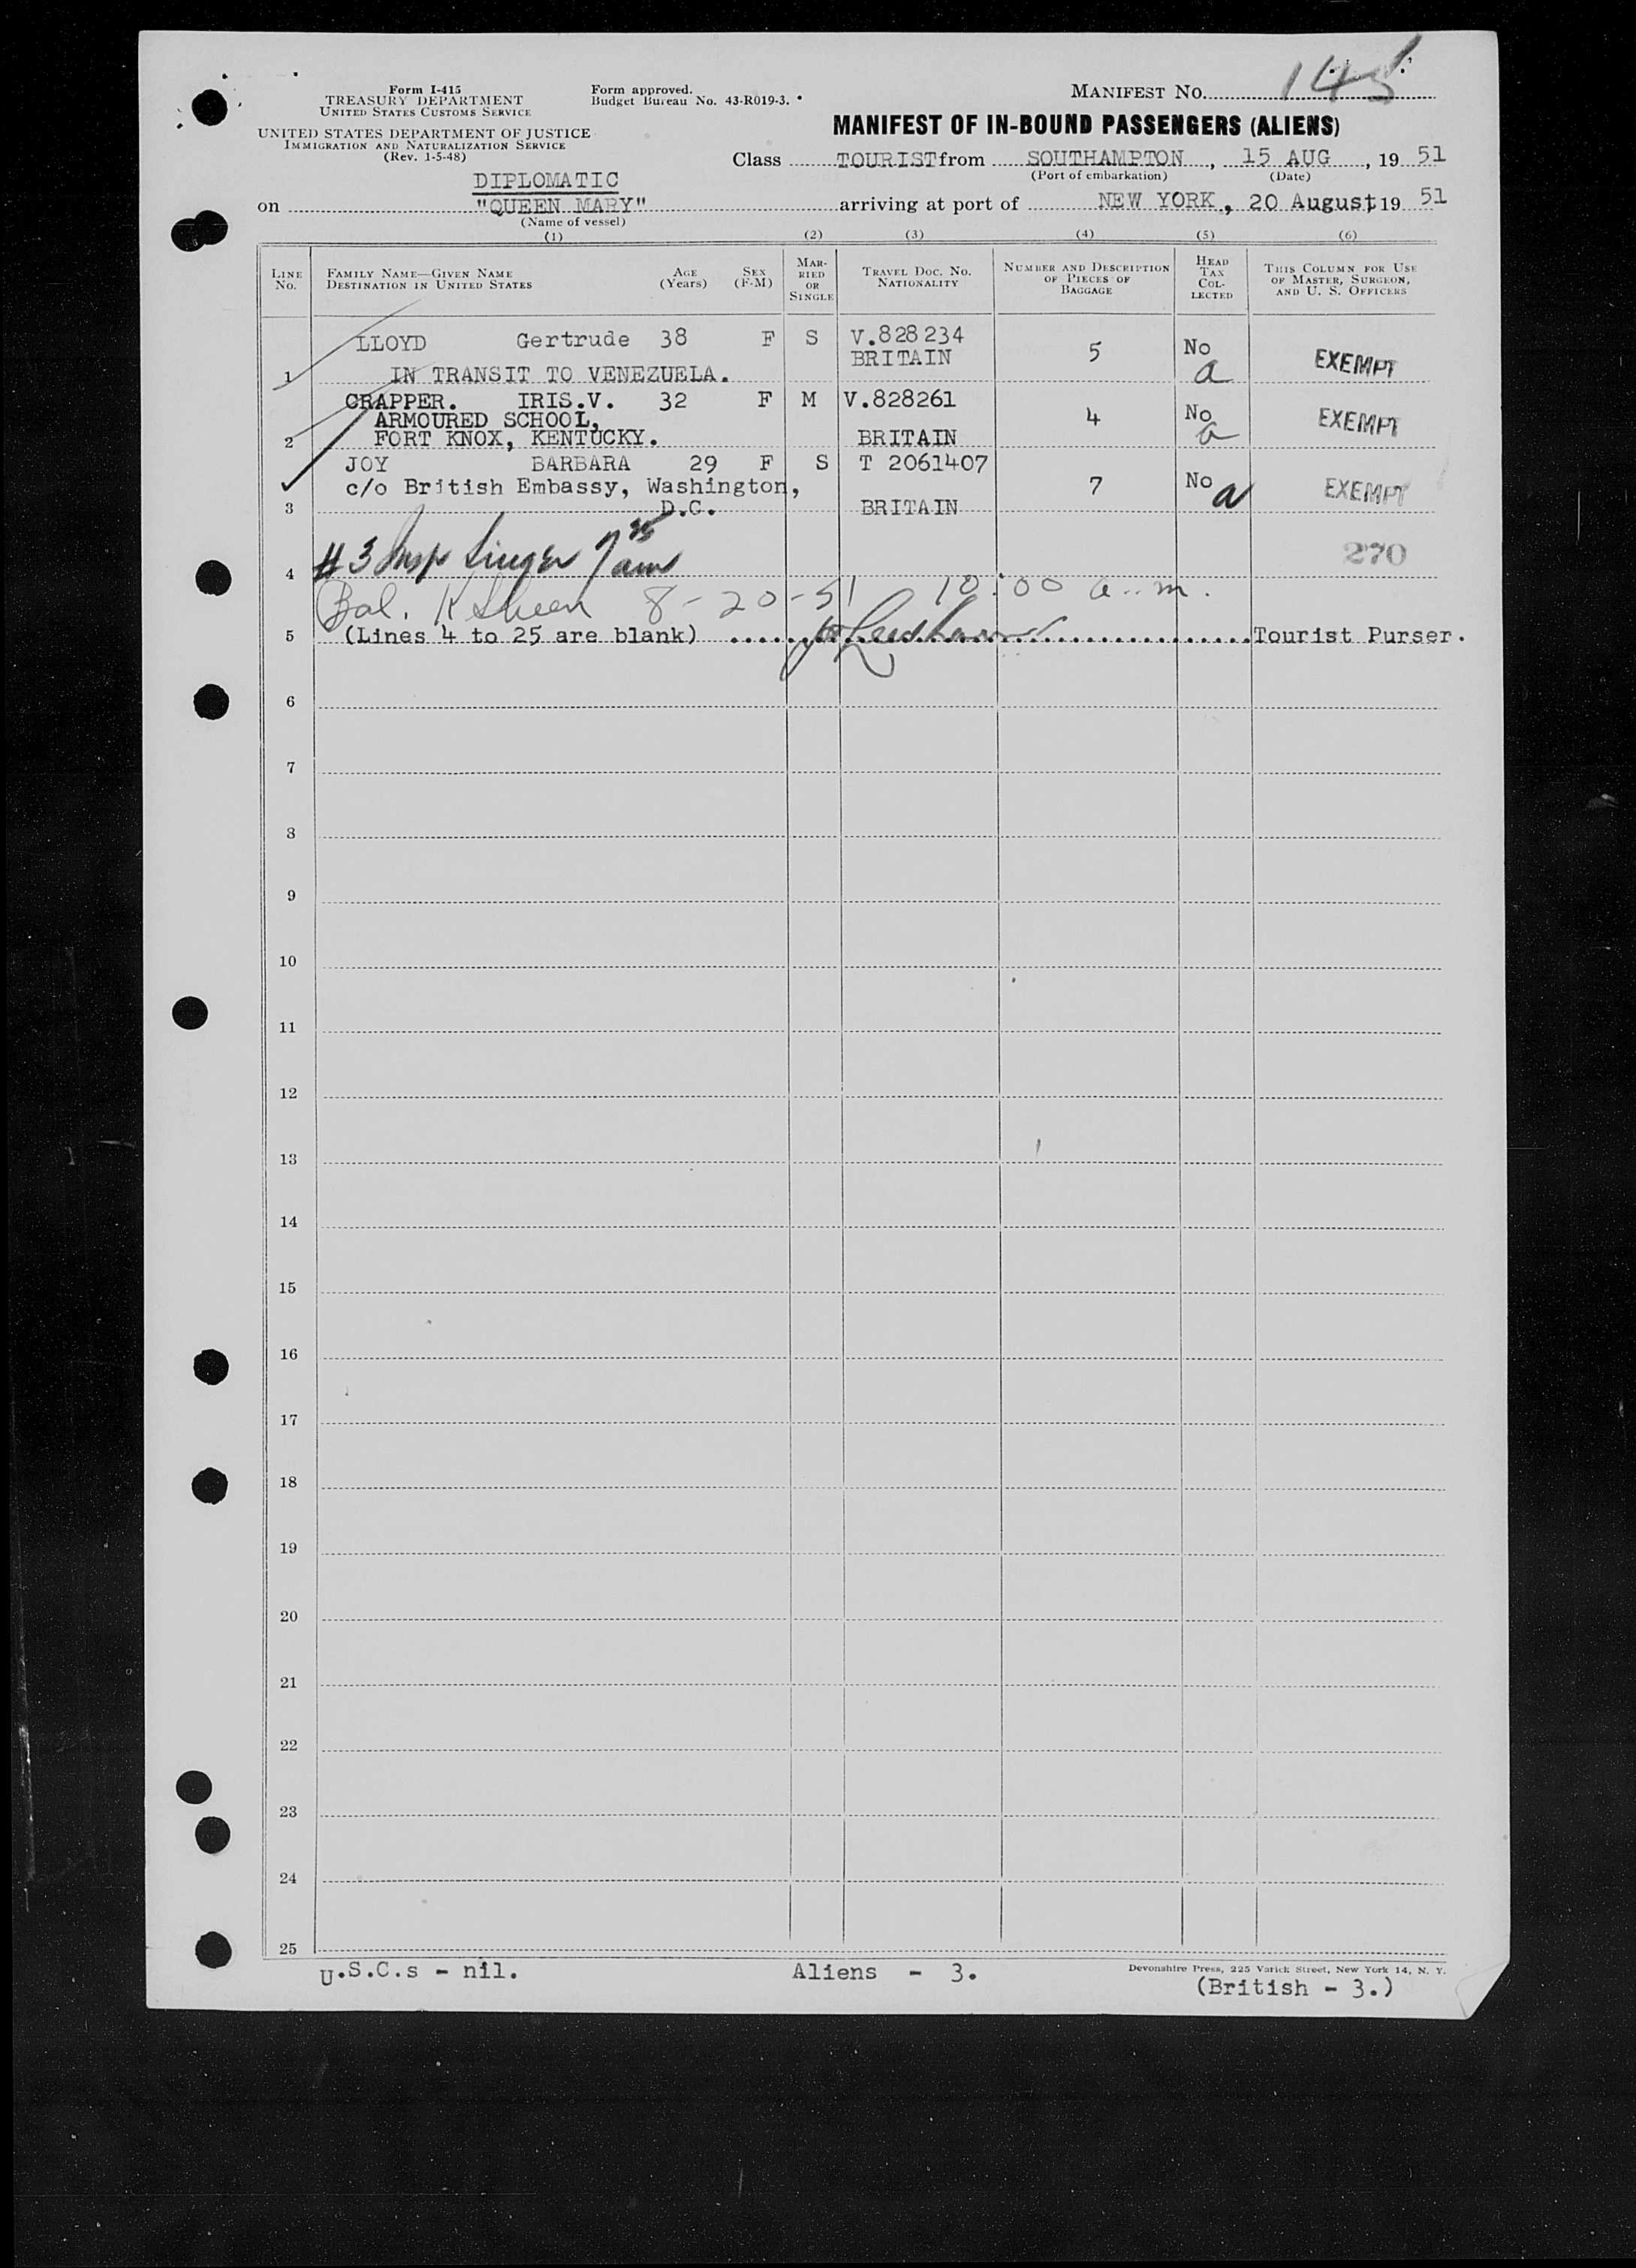 Form I-415
TREASURY DEPARTMENT
UNITED STATES CUSTOMS SERVICE
UNITED STATES DEPARTMENT OF JUSTICE
IMMIGRATION AND NATURALIZATION SERVICE
(Rev. 1-5-48)
Form approved.
Budget Bureau No. 43-R019-3.
MANIFEST No. 145
MANIFEST OF IN-BOUND PASSENGERS (ALIENS)
Class TOURIST from SOUTHAMPTON, 15 AUG, 19 51
(Port of embarkation) (Date)
DIPLOMATIC
on "QUEEN MARY" arriving at port of NEW YORK, 20 August, 19 51
(Name of vessel)
(1) (2) (3) (4) (5) (6)
LINE No. FAMILY NAME—GIVEN NAME DESTINATION IN UNITED STATES AGE (Years) SEX (F-M) MARRIED OR SINGLE TRAVEL DOC. NO. NATIONALITY NUMBER AND DESCRIPTION OF PIECES OF BAGGAGE HEAD TAX COLLECTED THIS COLUMN FOR USE OF MASTER, SURGEON, AND U. S. OFFICERS
LLOYD Gertrude 38 F S V.828234
BRITAIN 5 No EXEMPT
1 IN TRANSIT TO VENEZUELA. a
CRAPPER. IRIS.V. 32 F M V.828261
ARMOURED SCHOOL, 4 No EXEMPT
2 FORT KNOX, KENTUCKY. BRITAIN a
JOY BARBARA 29 F S T 2061407
c/o British Embassy, Washington, 7 No a EXEMPT
3 D.C. BRITAIN
4 #3 Insp Singer 7 35 am 270
Bal. 8-20-51 10:00 a.m.
5 (Lines 4 to 25 are blank) Tourist Purser.
6
7
8
9
10
11
12
13
14
15
16
17
18
19
20
21
22
23
24
25
U.S.C.s - nil. Aliens - 3. Devonshire Press, 225 Varick Street, New York 14, N. Y.
(British - 3.)